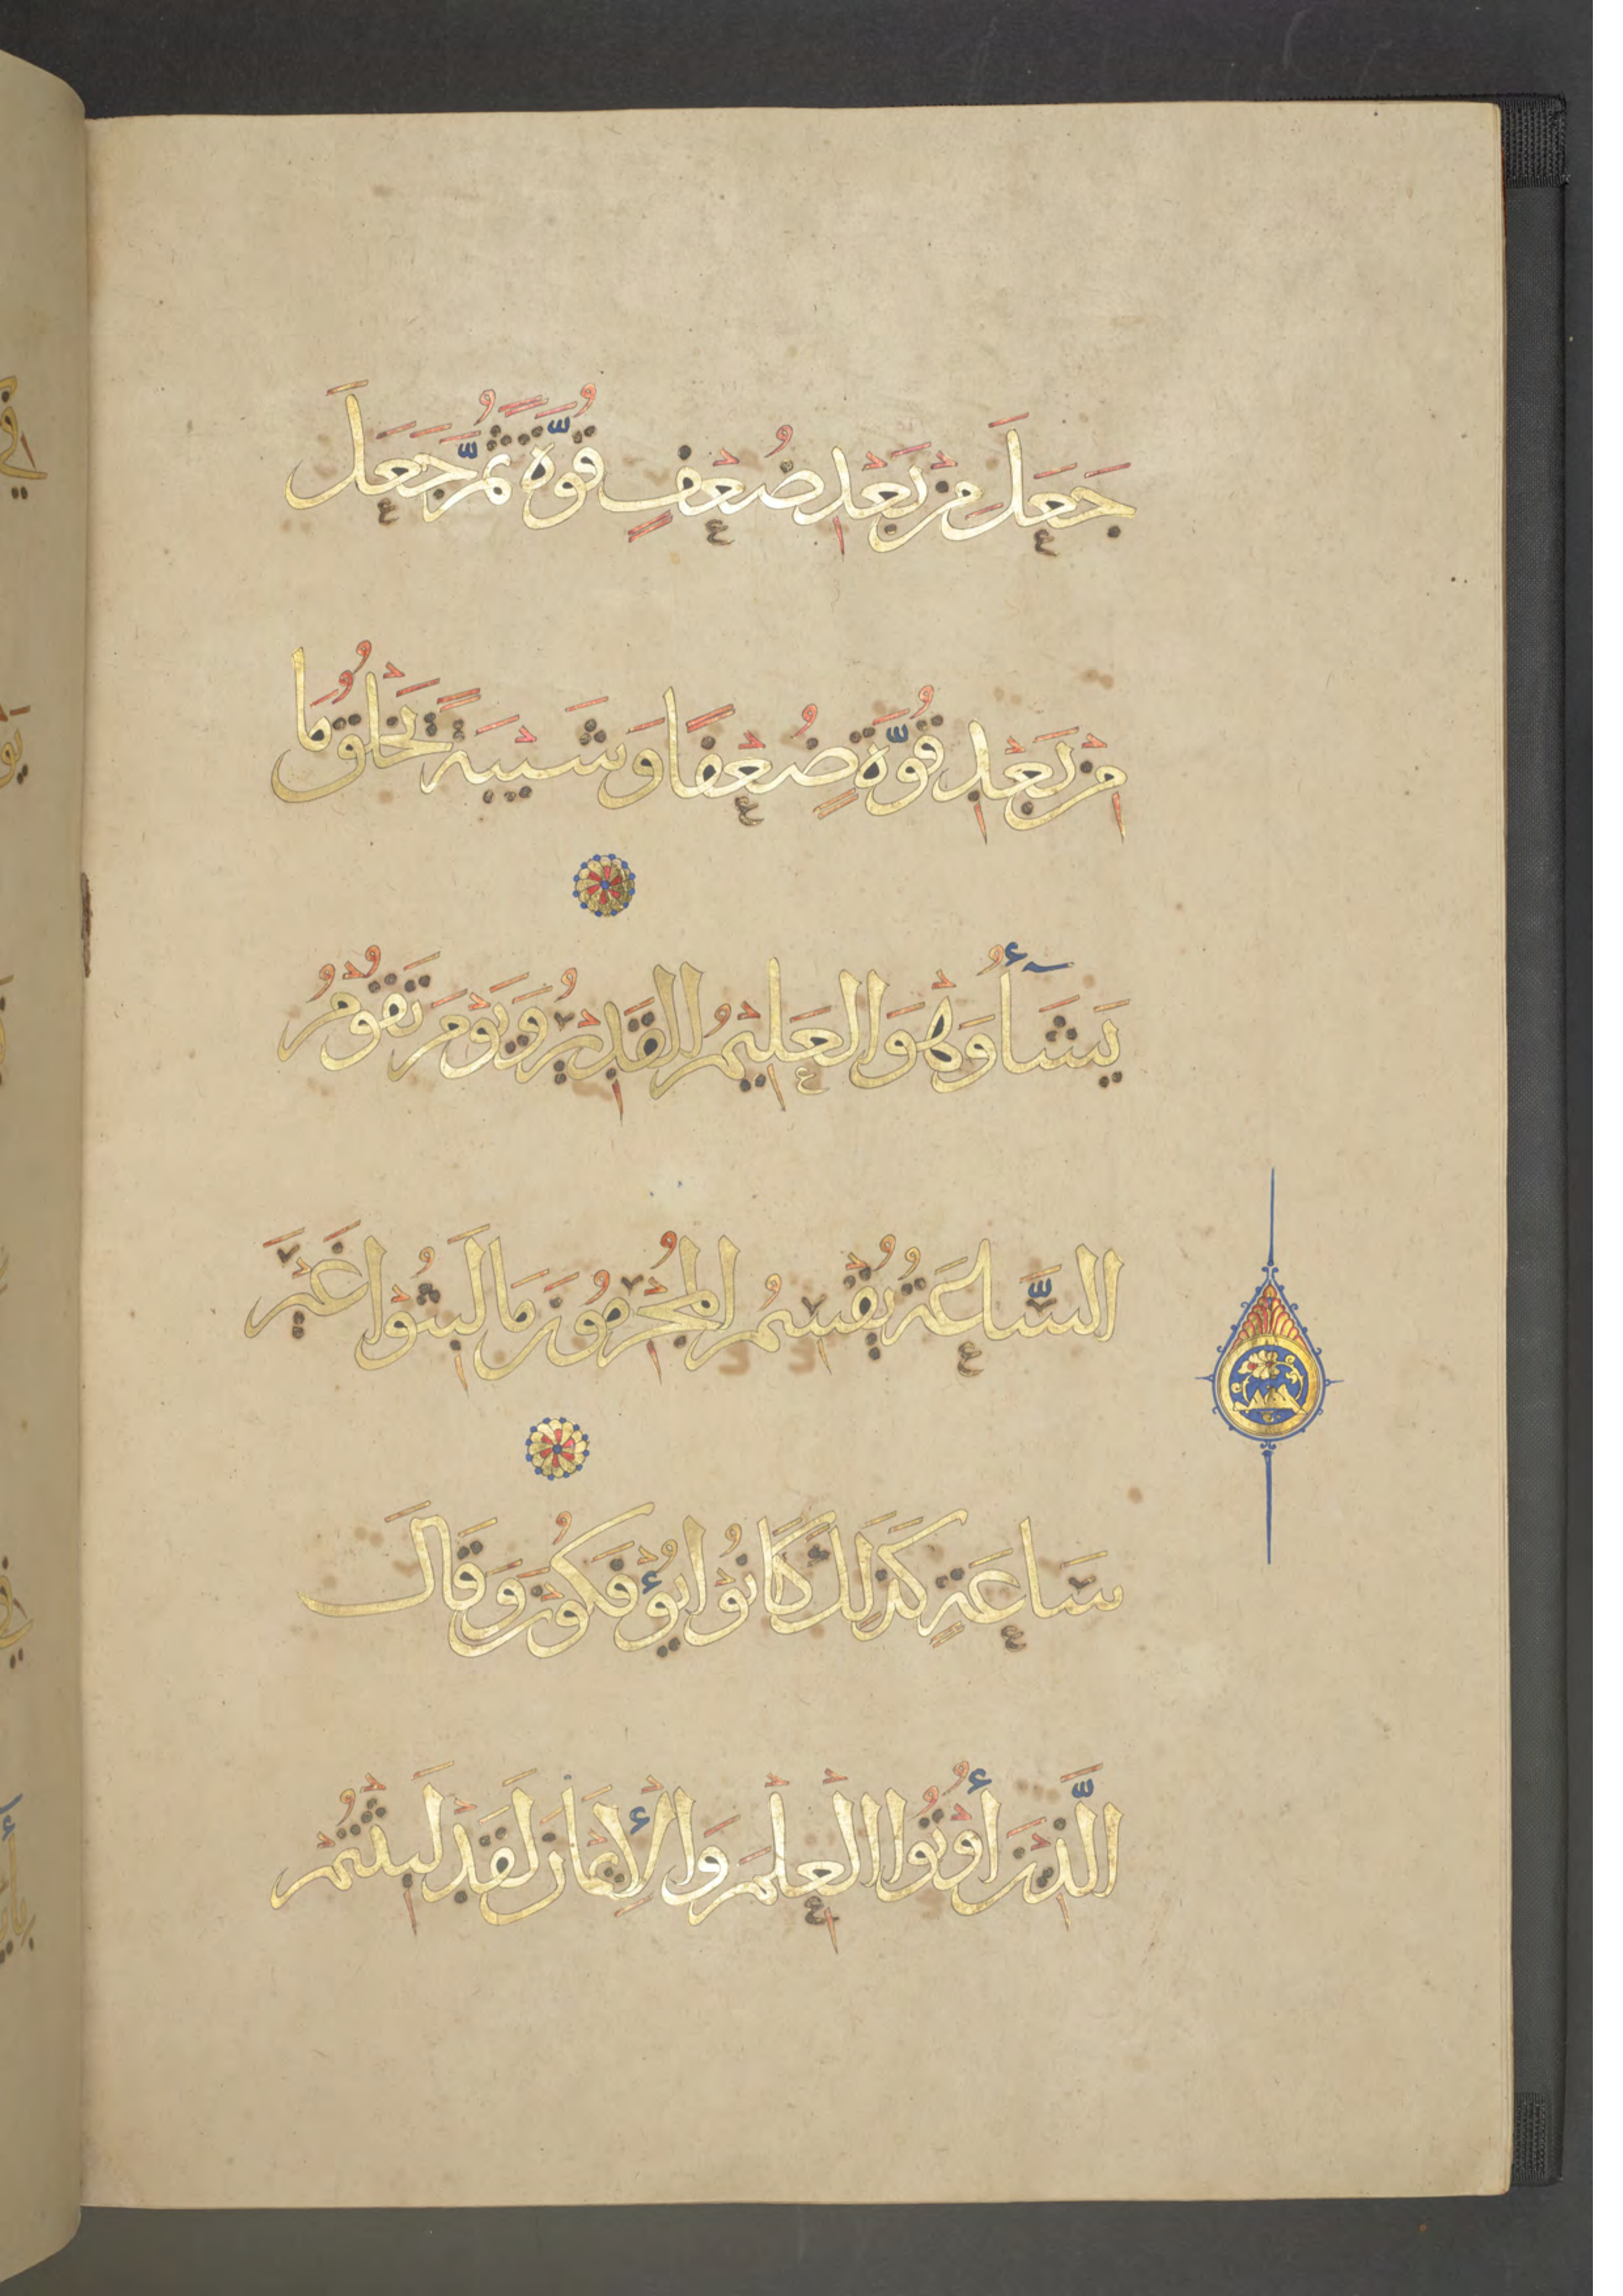 جَعَلَ مِنْ بَعْدِ ضُعْفٍ قُوَّةً ثُمَّ جَعَلَ
مِنْ بَعْدِ قُوَّةٍ ضُعْفًا وَشَيْبَةً يَخْلُقُ مَا
يَشَآءُ وَهُوَ الْعَلِيْمُ الْقَدِيْرُ وَيَوْمَ تَقُوْمُ
السَّاعَةُ يُقْسِمُ الْمُجْرِمُوْنَ مَا لَبِثُوْا غَيْرَ
سَاعَةٍ كَذَلِكَ كَانُوْا يُؤْفَكُوْنَ وَقَالَ
الَّذِيْنَ أُوْتُوا الْعِلْمَ وَالْإِيْمَانَ لَقَدْ لَبِثْتُمْ